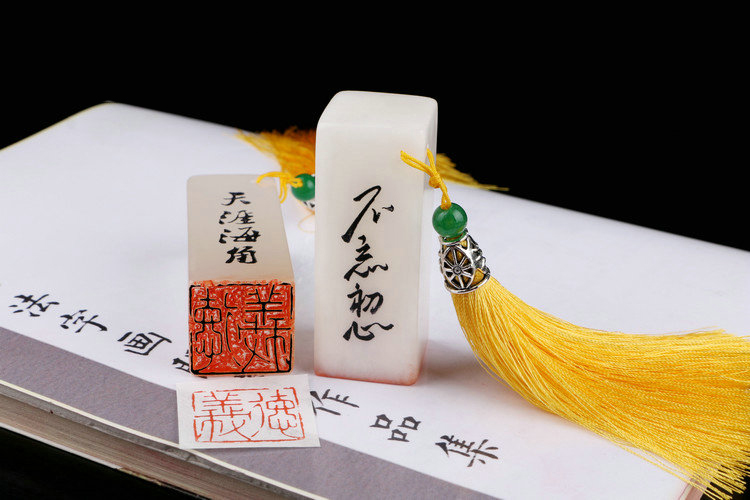 天涯海角
不忘初心
法字画
作品集
德義